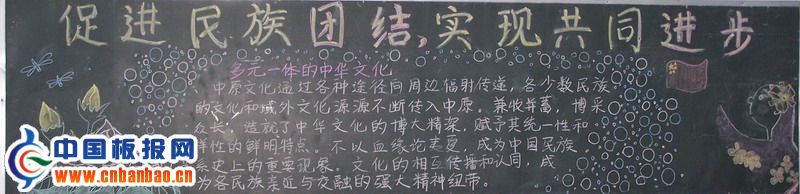 促进民族团结,实现共同进步
多元一体的中华文化
中原文化通过各种途径向周边辐射传递,各少数民族
的文化和域外文化源源不断传入中原。兼收并蓄,博采
众长,造就了中华文化的博大精深,赋予其统一性和
样性的鲜明特点。不以血缘论夷夏,成为中国民族
系史上的重要现象。文化的相互传播和认同,成
为各民族亲近与交融的强大精神纽带。
中国板报网
www.cnbanbao.cn